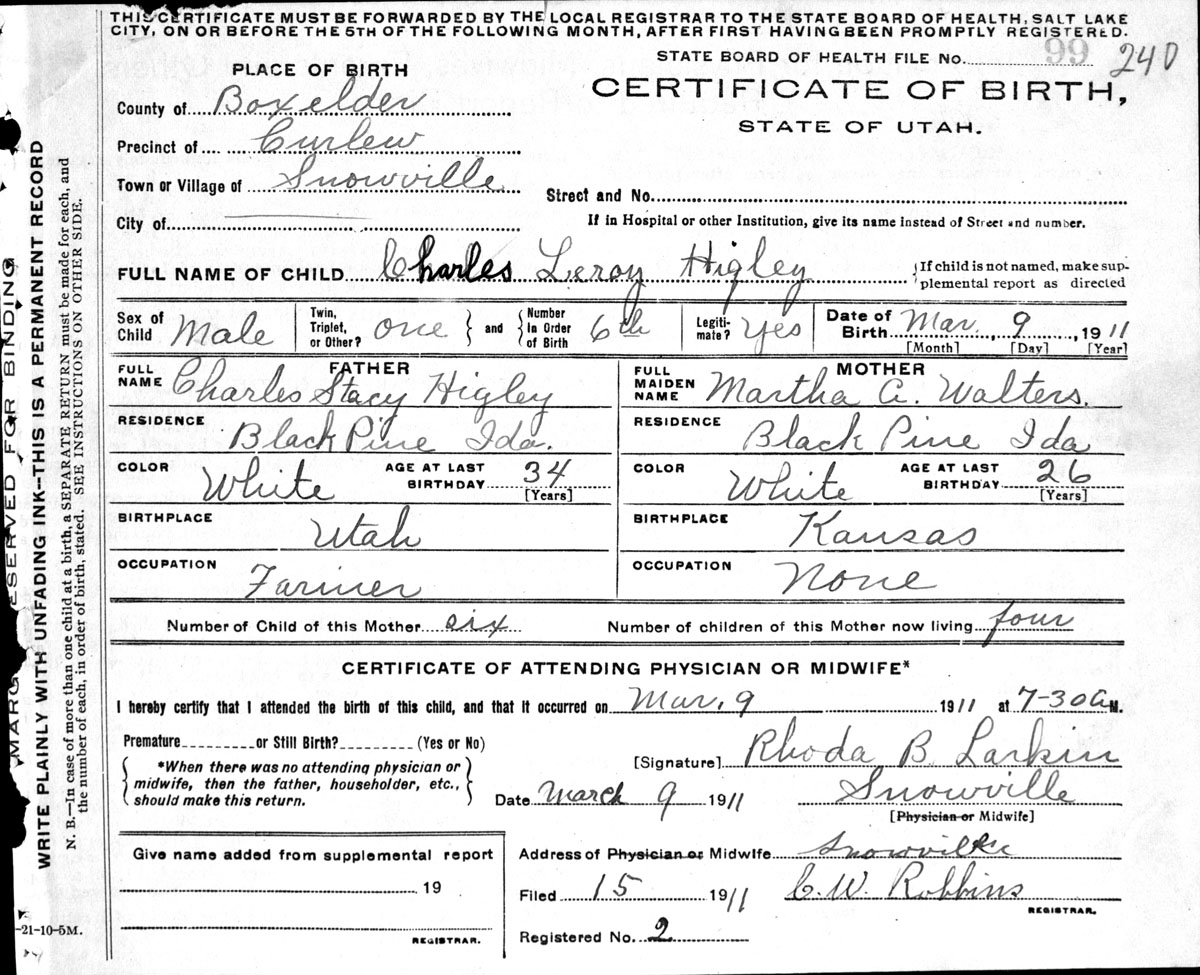 THIS CERTIFICATE MUST BE FORWARDED BY THE LOCAL REGISTRAR TO THE STATE BOARD OF HEALTH, SALT LAKE
CITY, ON OR BEFORE THE 5TH OF THE FOLLOWING MONTH, AFTER FIRST HAVING BEEN PROMPTLY REGISTERED.
STATE BOARD OF HEALTH FILE No. 99 240
PLACE OF BIRTH
CERTIFICATE OF BIRTH,
STATE OF UTAH.
County of Boxelder
Precinct of Curlew
Town or Village of Snowville
Street and No.
City of
If in Hospital or other Institution, give its name instead of Street and number.
FULL NAME OF CHILD Charles Leroy Higley
{If child is not named, make sup-
plemental report as directed
Sex of Child Male
Twin, Triplet, or Other? one } and { Number in Order of Birth 6th
Legiti-mate? Yes
Date of Birth Mar. 9, 1911
[Month] [Day] [Year]
FATHER
FULL NAME Charles Stacy Higley
RESIDENCE Black Pine Ida.
COLOR White AGE AT LAST BIRTHDAY 34
[Years]
BIRTHPLACE Utah
OCCUPATION Farmer
MOTHER
FULL MAIDEN NAME Martha A. Walters.
RESIDENCE Black Pine Ida
COLOR White AGE AT LAST BIRTHDAY 26
[Years]
BIRTHPLACE Kansas
OCCUPATION None
Number of Child of this Mother six Number of children of this Mother now living four
CERTIFICATE OF ATTENDING PHYSICIAN OR MIDWIFE*
I hereby certify that I attended the birth of this child, and that it occurred on Mar. 9 1911 at 7-30 a M.
Premature or Still Birth? (Yes or No)
*When there was no attending physician or
midwife, then the father, householder, etc.,
should make this return.
[Signature] Rhoda B Larkin
Date March 9 1911 Snowville
[Physician or Midwife]
Give name added from supplemental report
19
REGISTRAR.
Address of Physician or Midwife Snowville
Filed 15 1911 C. W. Robbins
REGISTRAR.
Registered No. 2
MARG ESERVED FOR BINDING
WRITE PLAINLY WITH UNFADING INK--THIS IS A PERMANENT RECORD
N. B.--In case of more than one child at a birth, a SEPARATE RETURN must be made for each, and
the number of each, in order of birth, stated. SEE INSTRUCTIONS ON OTHER SIDE.
-21-10-5M.